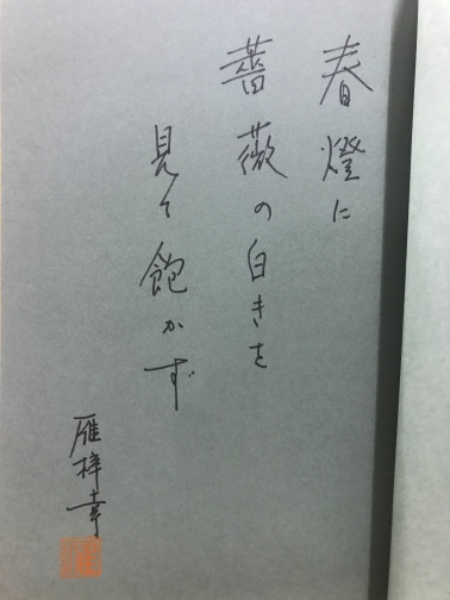 春燈に
薔薇の白きを
見て飽かず
雁梓幸